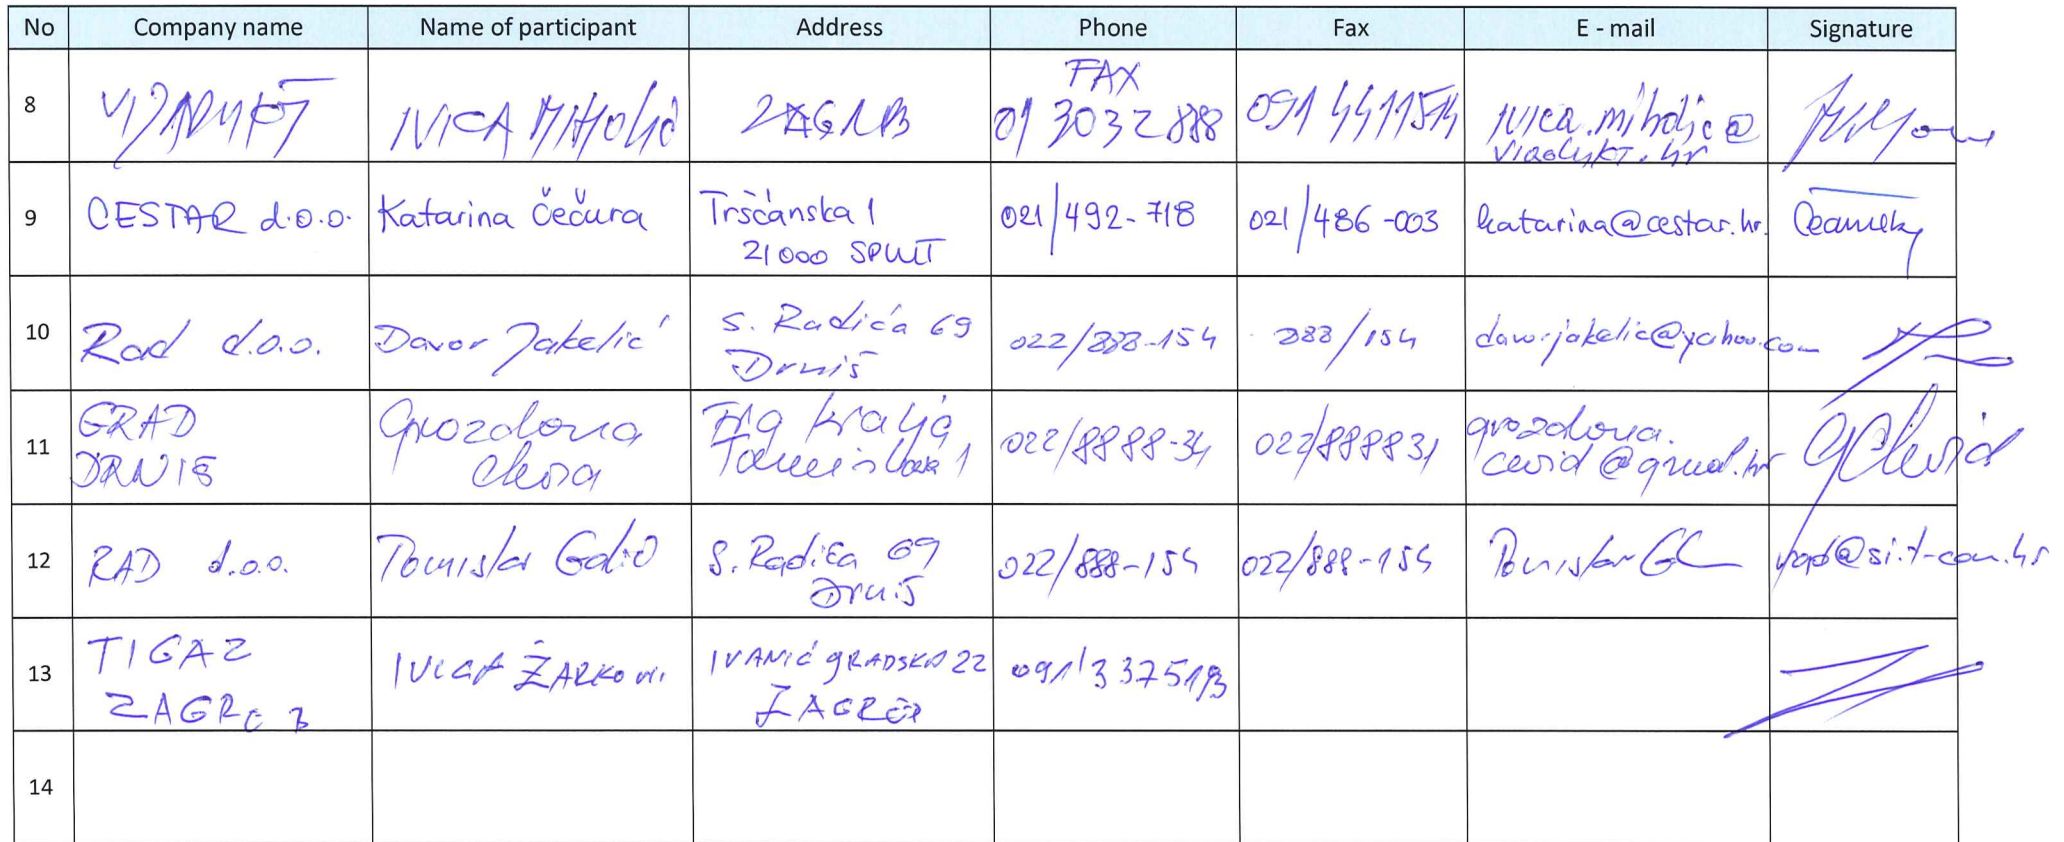 No Company name Name of participant Address Phone Fax E - mail Signature
8 IVICA ZAGREB FAX
01 3032 888 091 4411514 ivica.miholic@
9 CESTAR d.o.o. Katarina Čečura Tršćanska 1
21000 SPLIT 021/492-718 021/486-003 katarina@cestar.hr
10 Rad d.o.o. Davor Jakelić S. Radića 69
Drniš 022/888-154 888/154 davorjakelic@yahoo.com
11 GRAD
DRNIŠ Gvozdana Trg kralja
Tomislava 1 022/8888-34 022/888831 gvozdana.
cevid@gmail.hr
12 RAD d.o.o. Tomislav Galić S. Radića 69
Drniš 022/888-154 022/888-154 Tomislav rad@si.t-com.hr
13 TIGAZ
ZAGREB IVICA ŽARKOVIĆ IVANIĆGRADSKA 22
ZAGREB 091/3375193
14